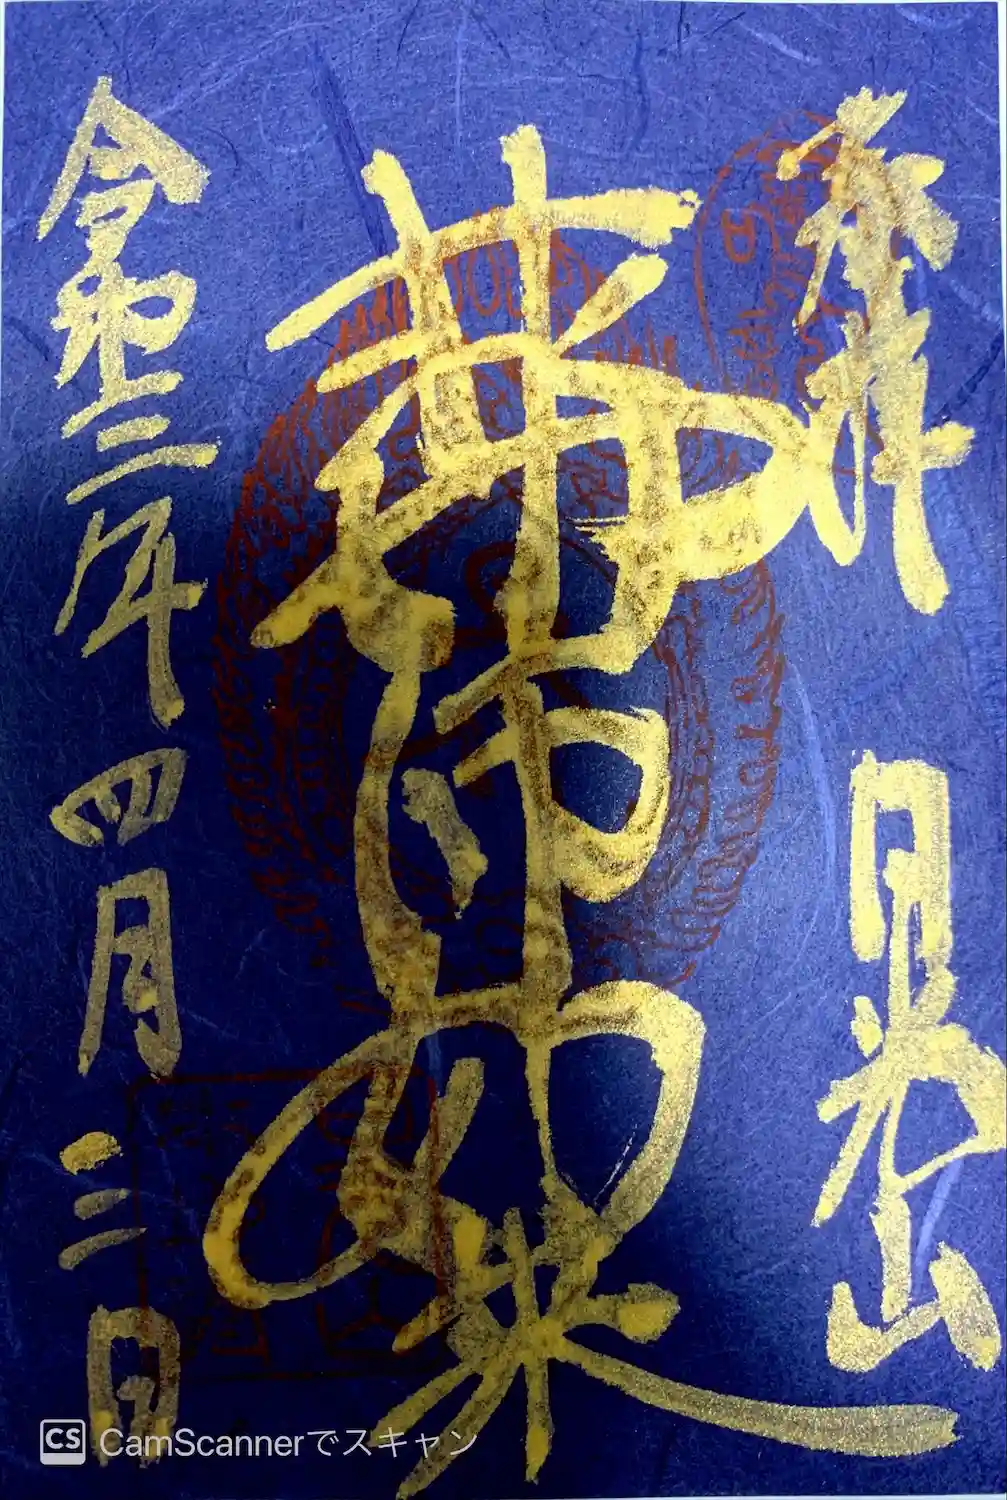 奉拝 日光山
薬師如来
令和三年四月三日
CamScannerでスキャン